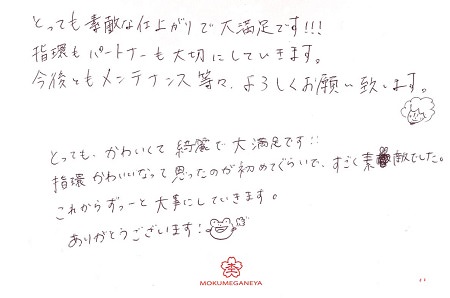 とっても素敵な仕上がりで大満足です!!!
指環もパートナーも大切にしていきます。
今後ともメンテナンス等々、よろしくお願い致します。
とっても、かわいくて綺麗で大満足です!!
指環かわいいなって思ったのが初めてぐらいで、すごく素敵でした。
これからずっーと大事にしていきます。
ありがとうございます!
MOKUMEGANEYA